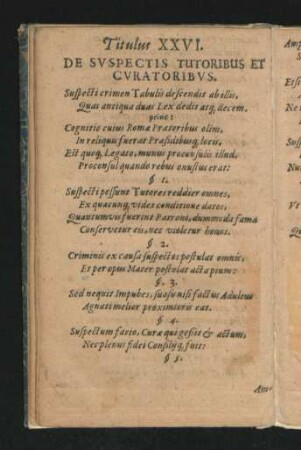 Titulus XXVI.
DE SVSPECTIS TUTORIBUS ET
CVRATORIBVS.
Suspecti crimen Tabulis descendit ab illis,
Quas antiqua duas Lex dedit atq; decem.
princ:
Cognitio cuius Romæ Prætoribus olim,
In reliquis fuerat Præsidibusq; locis,
Est quoq; Legato, munus proconsulis illud,
Proconsul quando rebus onustus erat:
§ 1.
Suspecti possunt Tutores reddier omnes,
Ex quacunq; vides conditione datos,
Quantumvis fuerint Patroni, dummodo fama
Conservetur eis, nec violetur honos.
§ 2.
Criminis ex causa suspectos postulat omnis,
Et per opus Mater postulat acta pium:
§. 3.
Sed nequit Impubes, suo nisi factus Adultus
Agnati melior proximioris eat.
§ 4.
Suspectum facio, Curæ qui gesit & actum,
Nec plenus fidei Consilijq; fuit:
§ 5.